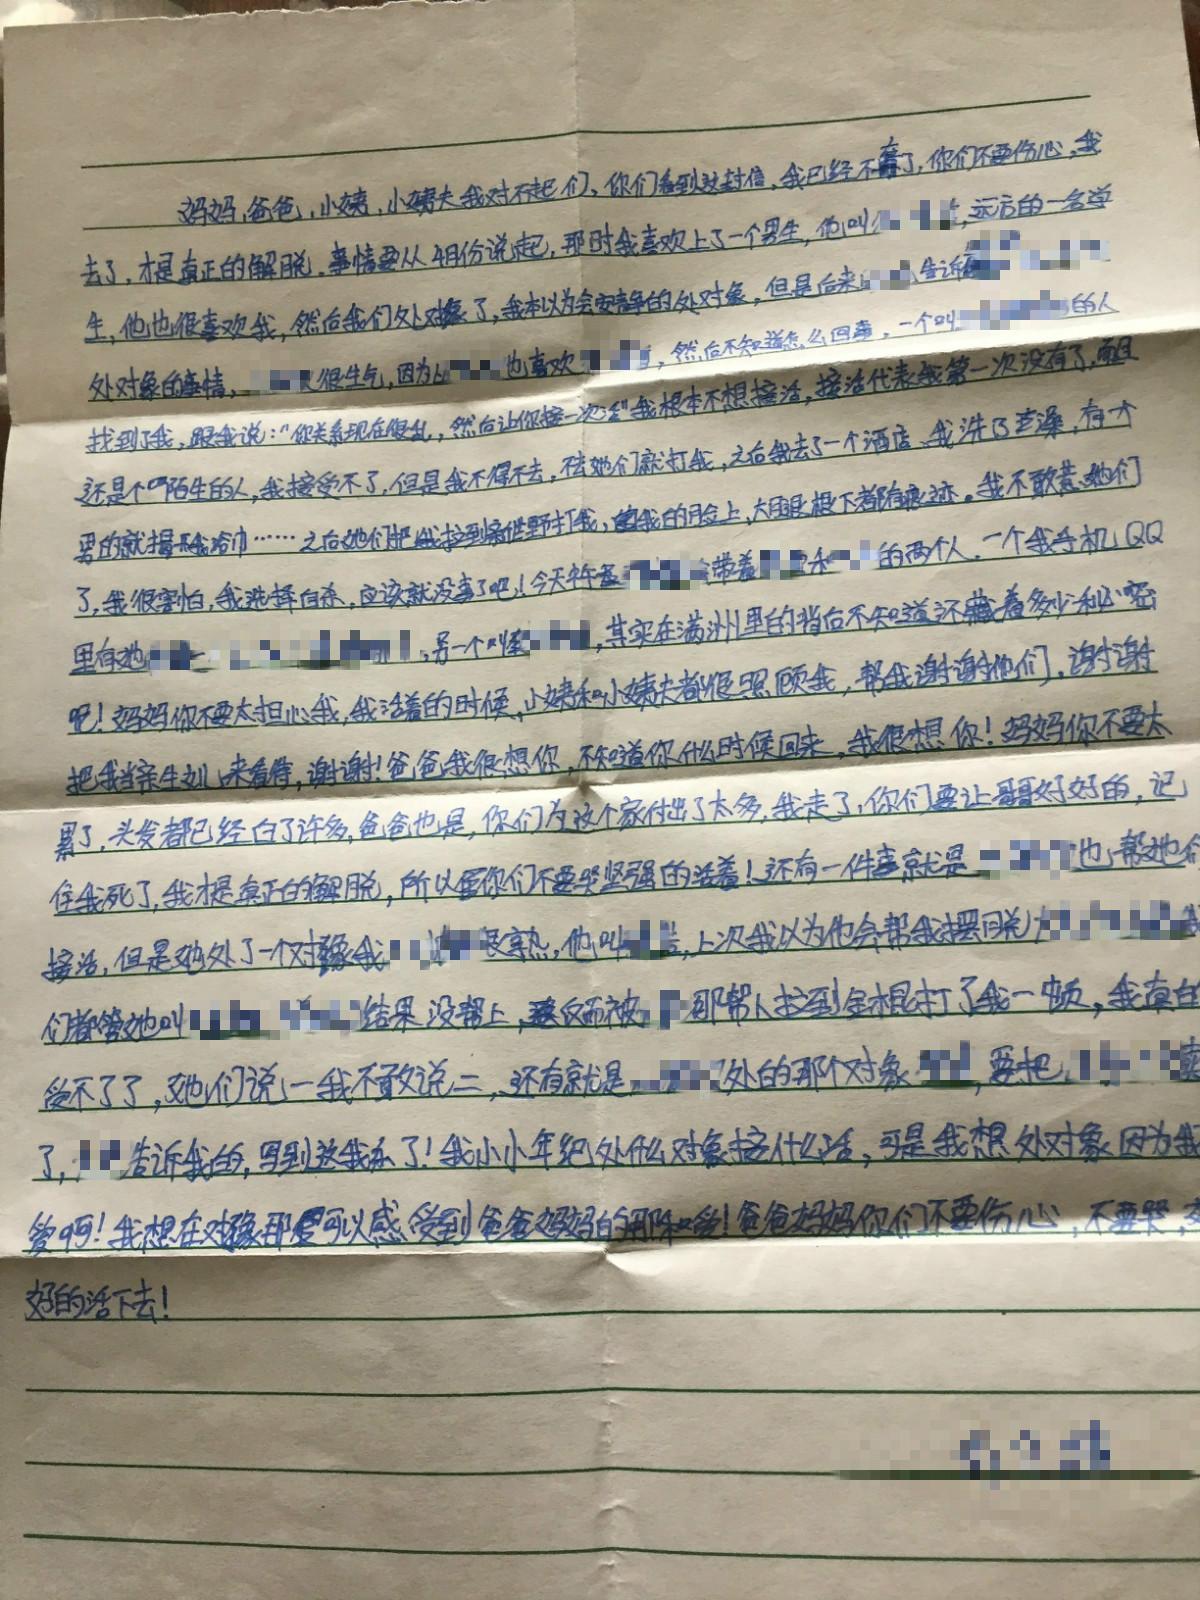 妈妈,爸爸,小姨,小姨夫我对不起们,你们看到这封信,我已经不在了,你们不要伤心,我
去了,才是真正的解脱。事情要从4月份说起,那时我喜欢上了一个男生,他叫,远方的一名学
生,他也很喜欢我,然后我们处对象了,我本以为会安静的处对象,但是后来告诉
处对象的事情,很生气,因为也喜欢,然后不知道怎么回事,一个叫的人
找到了我,跟我说:"你关系现在很乱,然后让你接一次活"我根本不想接活,接活代表我第一次没有了,而且
还是个陌生的人,我接受不了,但是我不得不去,不去她们就打我,之后我去了一个酒店,我洗了澡,有个
男的就浴巾……之后她们把我拉到打我,我的脸上,大腿根下都有痕迹。我不敢惹她们
了,我很害怕,我选择自杀,应该就没事了吧!今天中午带着和的两个人,一个我手机QQ
里有她,另一个叫,其实在满洲里的背后不知道还藏着多少秘密
吧!妈妈你不要太担心我,我活着的时候,小姨和小姨夫都很照顾我,帮我谢谢他们,谢谢
把我当亲生女儿来看待,谢谢!爸爸我很想你,不知道你什么时候回来,我很想你!妈妈你不要太
累了,头发都已经白了许多,爸爸也是,你们为这个家付出了太多,我走了,你们要让哥哥好好的,记
住我死了,我才是真正的解脱,所以你们不要哭坚强的活着!还有一件事就是也帮她们
接活,但是她处了一个对象我很熟,他叫,上次我以为他会帮我摆脱
们都管她叫结果没帮上,反而被那帮人拉到金棍打了我一顿,我真的
受不了了,她们说一我不敢说二,还有就是处的那个对象,要把卖
了,告诉我的,写到这我永了!我小小年纪处什么对象接什么活,可是我想处对象因为我
爱啊!我想在对象那可以感受到爸爸妈妈的那种爱!爸爸妈妈你们不要伤心,不要哭,
好的活下去!